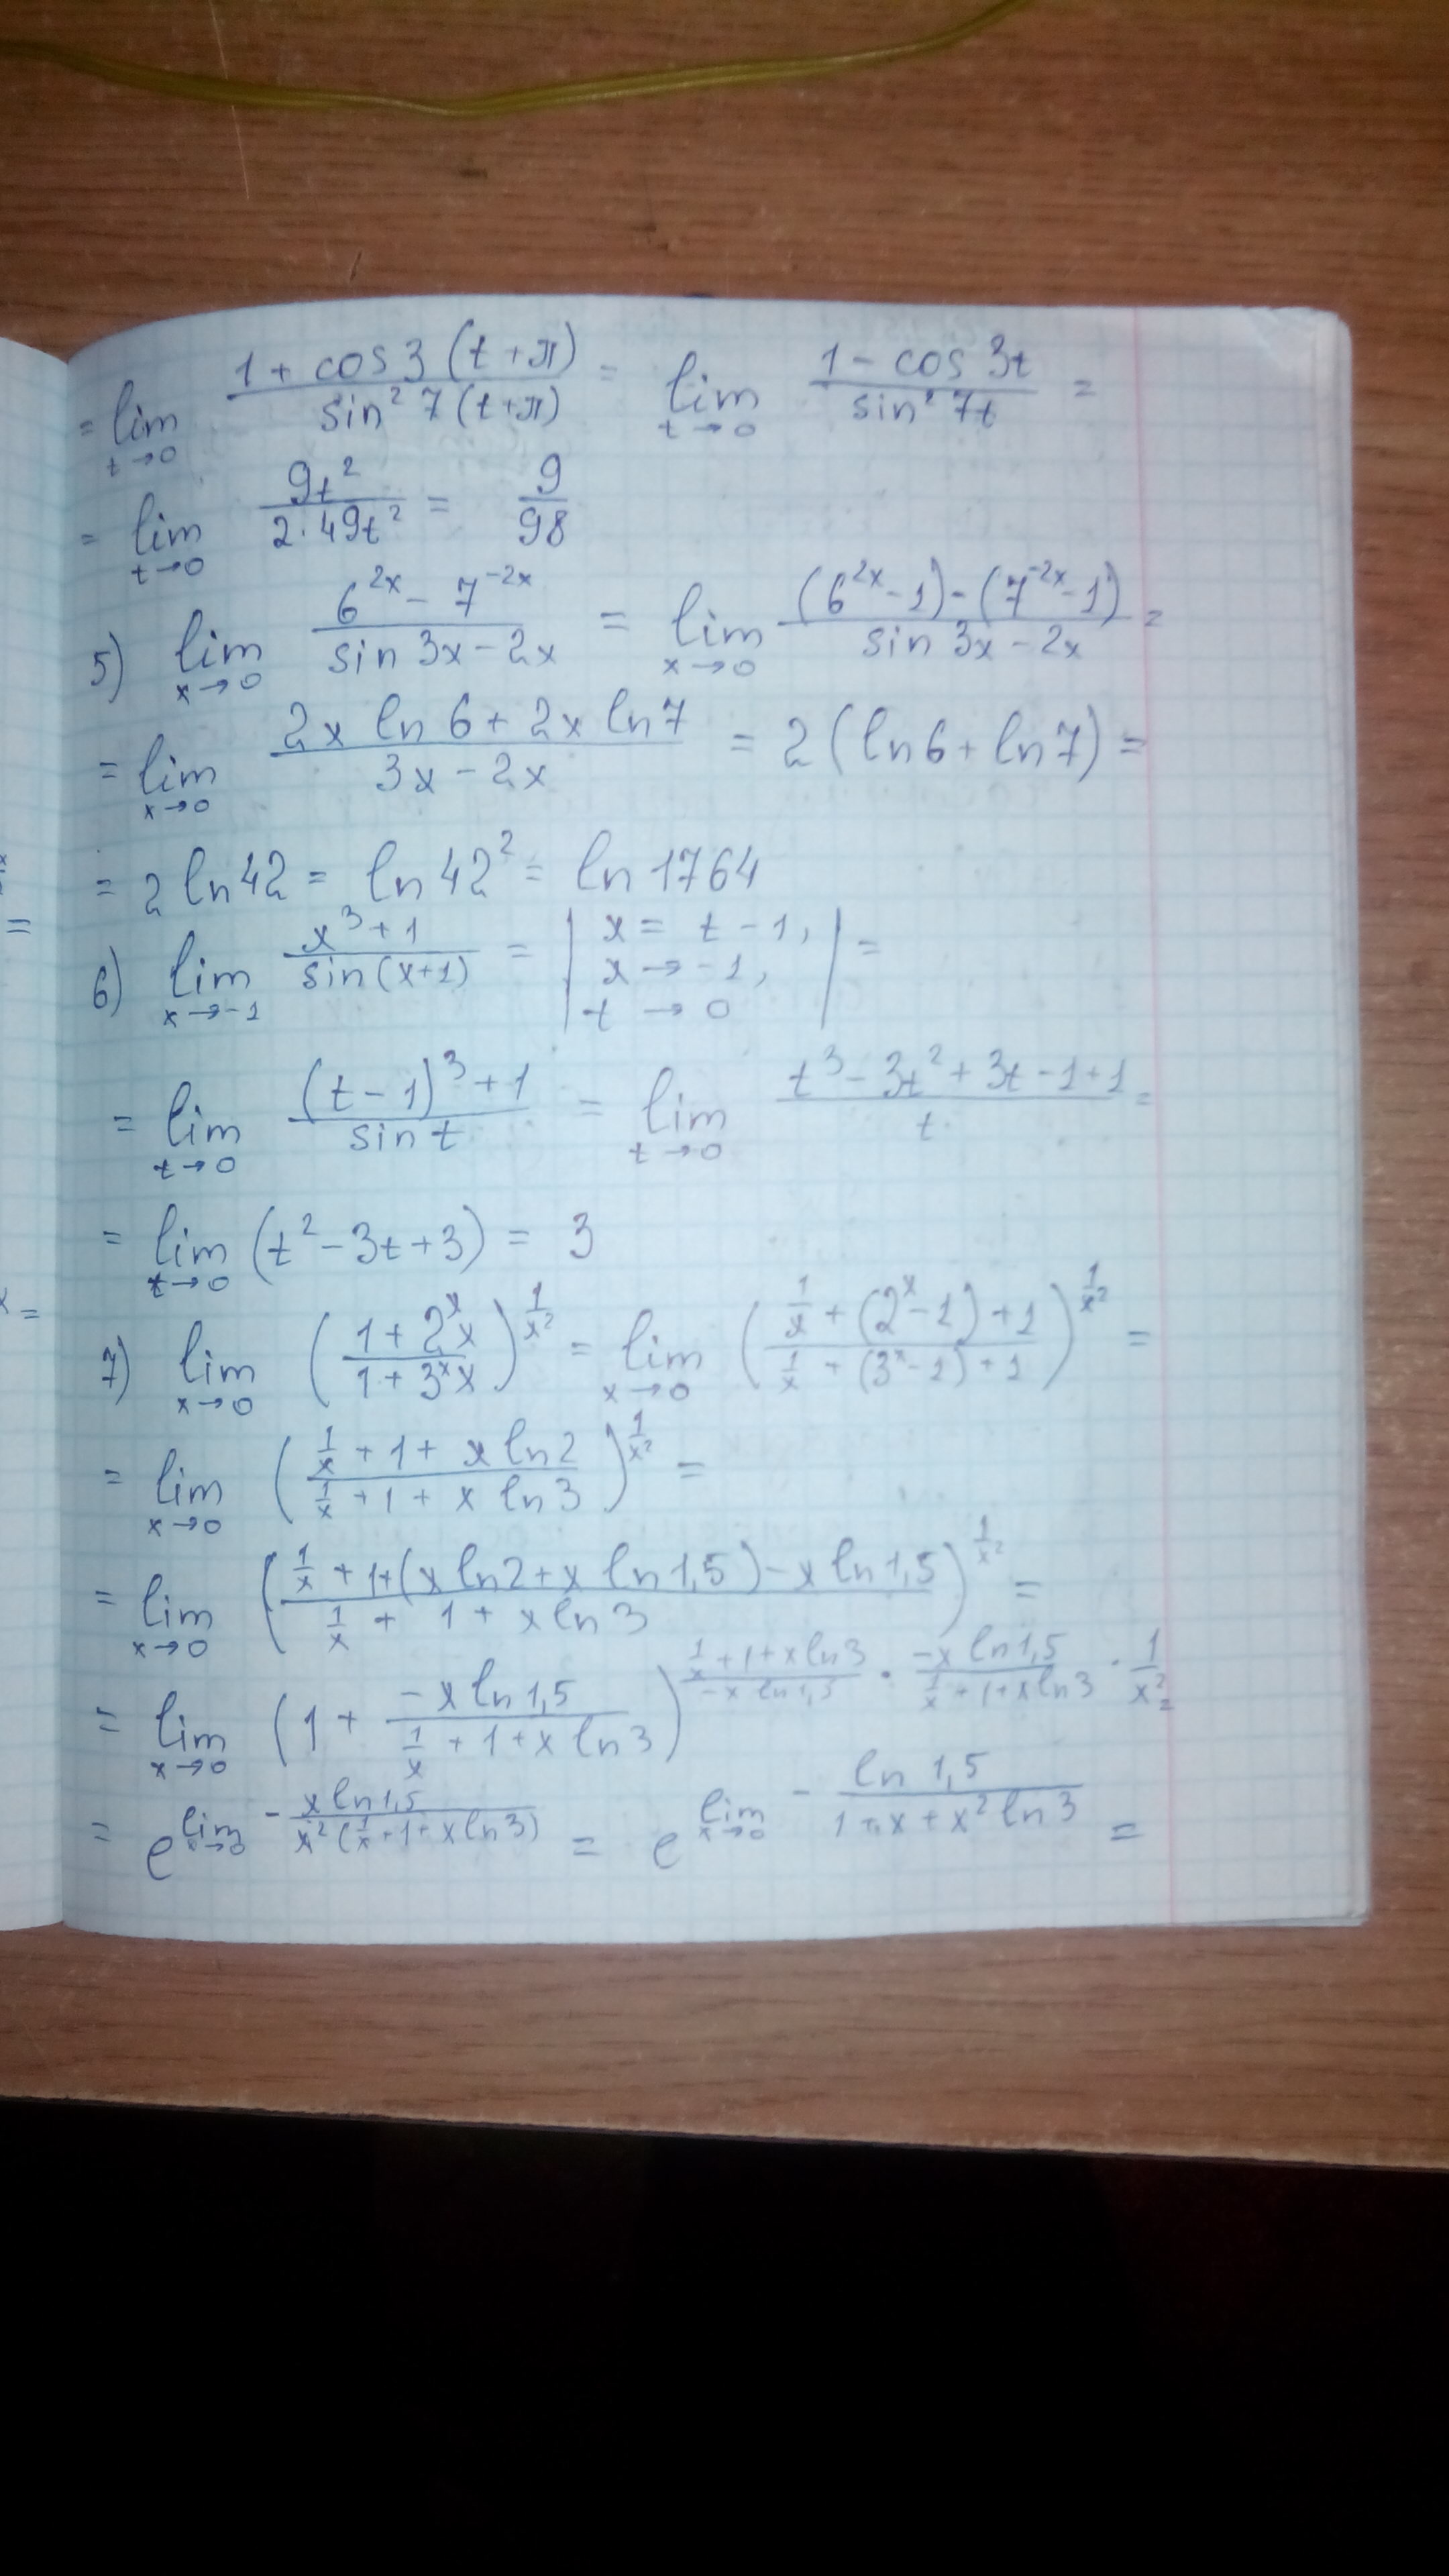 = lim t→0 (1 + cos 3(t + π)) / (sin² 7(t + π)) = lim t→0 (1 - cos 3t) / (sin² 7t) =
= lim t→0 9t² / (2·49t²) = 9/98
5) lim x→0 (6^(2x) - 7^(-2x)) / (sin 3x - 2x) = lim x→0 ((6^(2x) - 1) - (7^(-2x) - 1)) / (sin 3x - 2x) =
= lim x→0 (2x ln 6 + 2x ln 7) / (3x - 2x) = 2(ln 6 + ln 7) =
= 2 ln 42 = ln 42² = ln 1764
6) lim x→-1 (x³ + 1) / (sin(x+1)) = | x = t - 1, x → -1, t → 0 | =
= lim t→0 ((t - 1)³ + 1) / (sin t) = lim t→0 (t³ - 3t² + 3t - 1 + 1) / t =
= lim t→0 (t² - 3t + 3) = 3
7) lim x→0 ((1 + 2^x x) / (1 + 3^x x))^(1/x²) = lim x→0 ((1/x + (2^x - 1) + 1) / (1/x + (3^x - 1) + 1))^(1/x²) =
= lim x→0 ((1/x + 1 + x ln 2) / (1/x + 1 + x ln 3))^(1/x²) =
= lim x→0 ((1/x + 1 + (x ln 2 + x ln 1,5) - x ln 1,5) / (1/x + 1 + x ln 3))^(1/x²) =
= lim x→0 (1 + (-x ln 1,5) / (1/x + 1 + x ln 3))^((1/x + 1 + x ln 3) / (-x ln 1,5) · (-x ln 1,5) / (1/x + 1 + x ln 3) · 1/x²) =
= e^(lim x→0 - (x ln 1,5) / (x²(1/x + 1 + x ln 3))) = e^(lim x→0 - (ln 1,5) / (1 + x + x² ln 3)) =